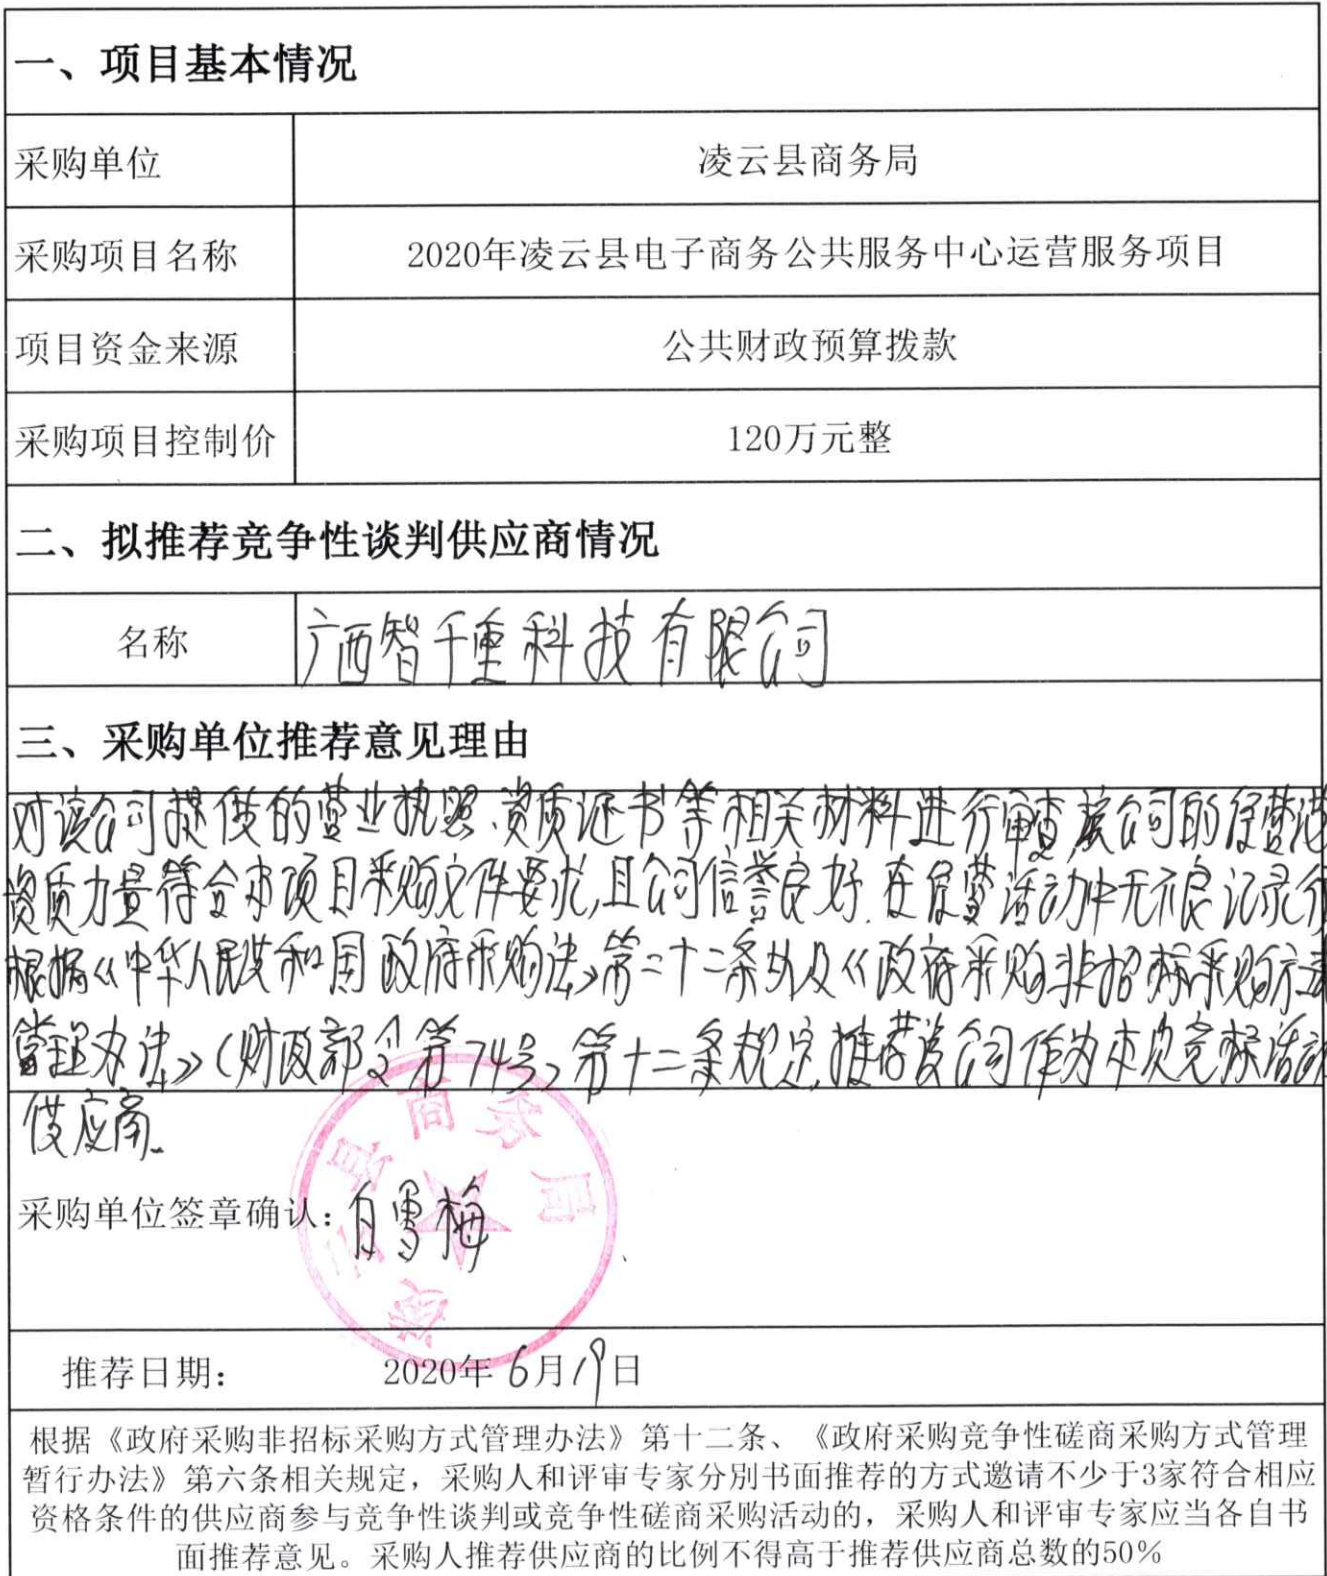 一、项目基本情况
采购单位
凌云县商务局
采购项目名称
2020年凌云县电子商务公共服务中心运营服务项目
项目资金来源
公共财政预算拨款
采购项目控制价
120万元整
二、拟推荐竞争性谈判供应商情况
名称
广西智千重科技有限公司
三、采购单位推荐意见理由
对该公司提供的营业执照、资质证书等相关材料进行审查,该公司的经营范
资质力量符合本项目采购文件要求,且公司信誉良好.在经营活动中无不良记录行
根据《中华人民共和国政府采购法》第二十二条以及《政府采购非招标采购方式
管理办法》(财政部令第74号)第十二条规定,推荐该公司作为本次竞标活动
供应商.
凌云县商务局
采购单位签章确认:
雪梅
推荐日期:
2020年6月19日
根据《政府采购非招标采购方式管理办法》第十二条、《政府采购竞争性磋商采购方式管理
暂行办法》第六条相关规定，采购人和评审专家分别书面推荐的方式邀请不少于3家符合相应
资格条件的供应商参与竞争性谈判或竞争性磋商采购活动的，采购人和评审专家应当各自书
面推荐意见。采购人推荐供应商的比例不得高于推荐供应商总数的50%